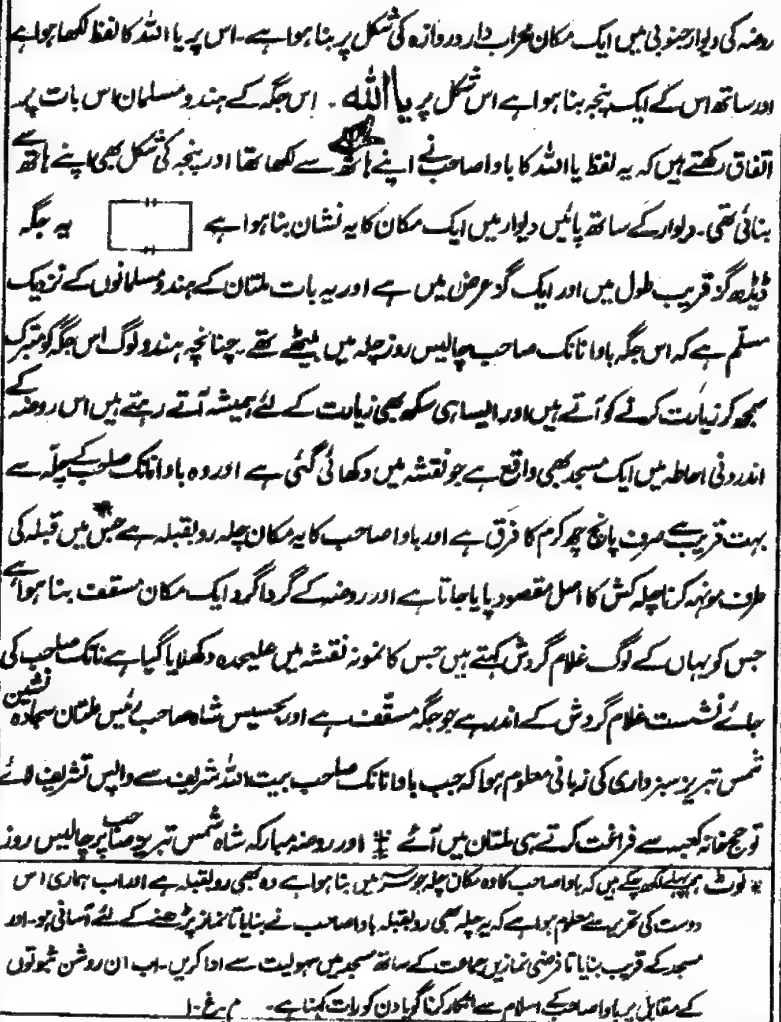 روضہ کی دیوار جنوبی میں ایک مکان محراب دار دروازہ کی شکل پر بنا ہوا ہے۔ اس پر یا اللہ کا لفظ لکھا ہوا ہے
اور ساتھ اس کے ایک پنجہ بنا ہوا ہے اس شکل پر یا اللہ ۔ اس جگہ کے ہندو مسلمان اس بات پر
اتفاق رکھتے ہیں کہ یہ لفظ یا اللہ کا باوا صاحب نے اپنے ہاتھ سے لکھا تھا اور پنجہ کی شکل بھی اپنے ہاتھ سے
بنائی تھی۔ دیوار کے ساتھ پائیں دیوار میں ایک مکان کا یہ نشان بنا ہوا ہے یہ جگہ
ڈیڑھ گز قریب طول میں اور ایک گز عرض میں ہے اور یہ بات ملتان کے ہندو مسلمانوں کے نزدیک
مسلّم ہے کہ اس جگہ باوا نانک صاحب چالیس روز چلہ میں بیٹھے تھے۔ چنانچہ ہندو لوگ اس جگہ کو متبرک
سمجھ کر زیارت کرنے کو آتے ہیں اور ایسا ہی سکھ بھی زیارت کے لئے ہمیشہ آتے رہتے ہیں اس روضہ کے
اندرونی احاطہ میں ایک مسجد بھی واقع ہے جو نقشہ میں دکھائی گئی ہے اور وہ باوا نانک صاحب کے چلّہ سے
بہت قریب ہے صرف پانچ چھ کرم کا فرق ہے اور باوا صاحب کا یہ مکان چلہ روبقبلہ ہے* جس میں قبلہ کی
طرف مونہہ کرنا چلہ کش کا اصل مقصود پایا جاتا ہے اور روضہ کے گرداگرد ایک مکان مسقف بنا ہوا ہے
جس کو یہاں کے لوگ غلام گردش کہتے ہیں جس کا نمونہ نقشہ میں علیحدہ دکھلایا گیا ہے نانک صاحب کی
جائے نشست غلام گردش کے اندر ہے جو جگہ مسقّف ہے اور بحسیس شاہ صاحب رئیس ملتان سجادہ نشین
شمس تبریز سبزداری کی زبانی معلوم ہوا کہ جب باوا نانک صاحب بیت اللہ شریف سے واپس تشریف لائے
تو حج خانہ کعبہ سے فراغت کرتے ہی ملتان میں آئے * اور روضہ مبارکہ شاہ شمس تبریز صاحب پر چالیس روز
* نوٹ ہم پہلے لکھ چکے ہیں کہ باوا صاحب کا وہ مکان چلہ جو سرسہ میں بنا ہوا ہے وہ بھی روبقبلہ ہے اور اب ہماری اس
دوست کی تحریر سے معلوم ہوا ہے کہ یہ چلہ بھی روبقبلہ باوا صاحب نے بنایا تا نماز پڑھنے کے لئے آسانی ہو۔ اور
مسجد کے قریب بنایا تا فرضی نمازیں جماعت کے ساتھ مسجد میں سہولیت سے ادا کریں۔ اب ان روشن ثبوتوں
کے مقابل پر باوا صاحب کے اسلام سے انکار کرنا گویا دن کو رات کہنا ہے۔ م-غ-ا